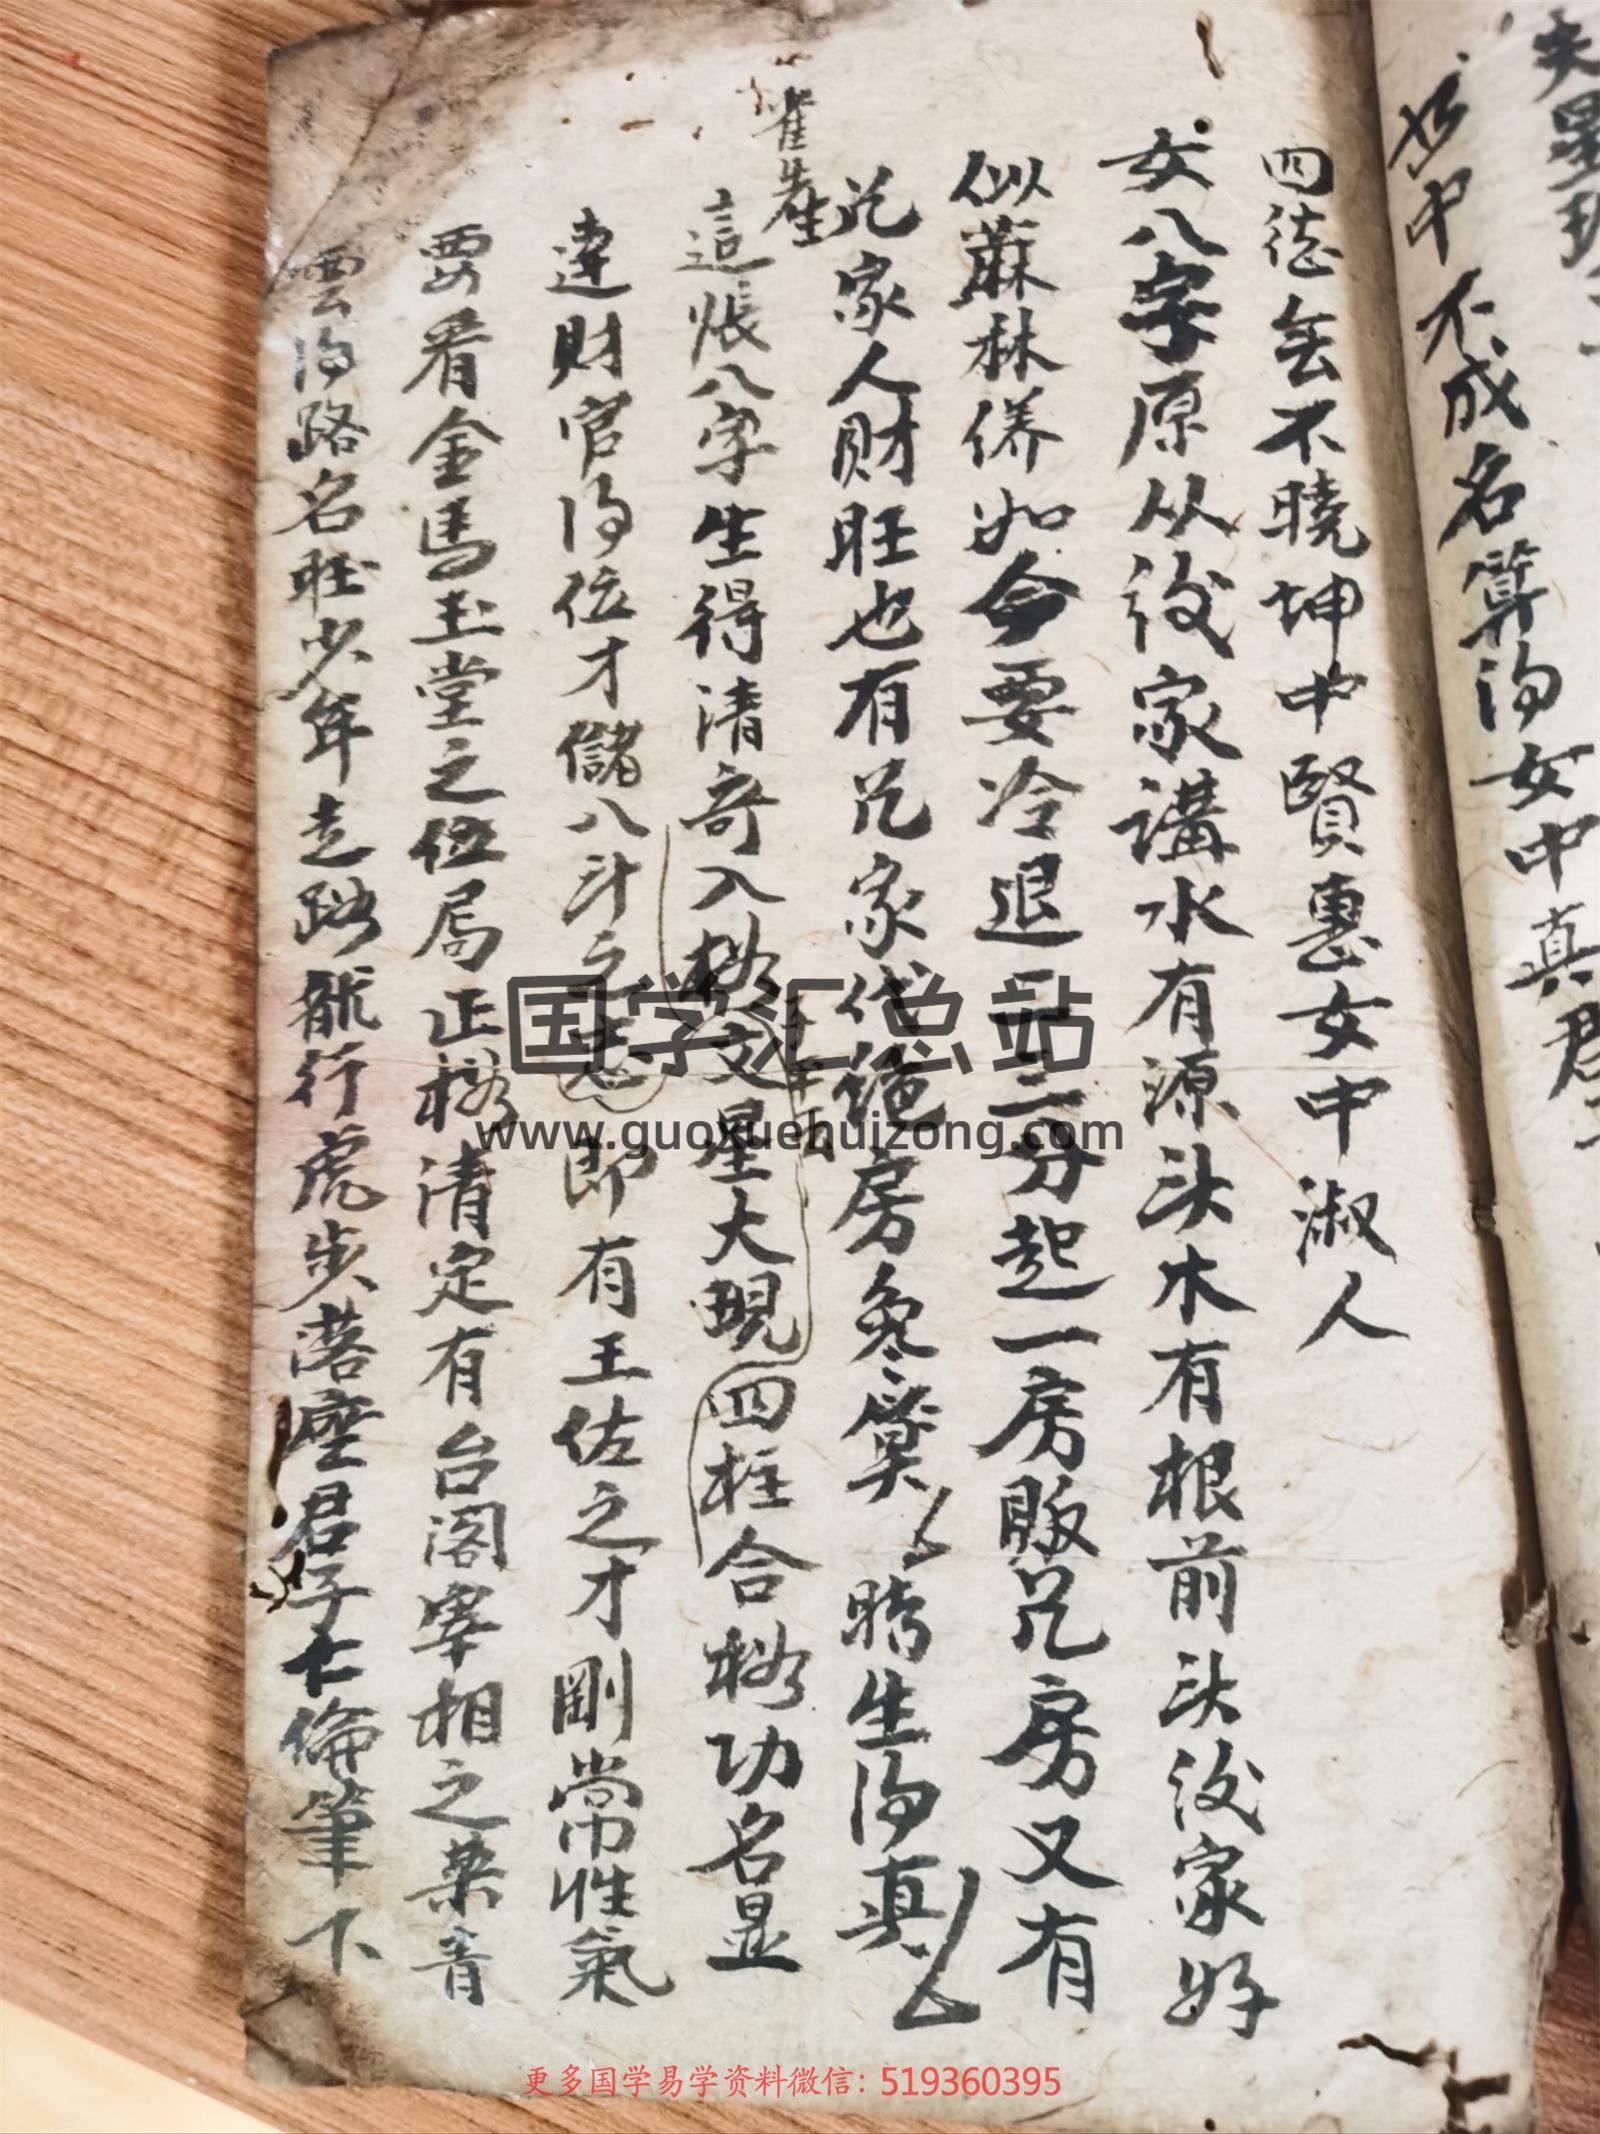 夫星
中不成名算淂女中真君
四德無不曉坤中賢惠女中淑人
女八字原从後家講水有源头木有根前头後家好
似蔴林係如今要冷退一二分起一房敗兄房又有
兄家人財旺也有兄家代絕房
時生淂真
崔先生
這張八字生得清奇入格文星大現四柱合格功名显
達財官淂位才儲八斗之志即有王佐之才剛常性氣
要看金馬玉堂之位局正格清定有台阁宰相之栄青
雲淂路名旺少年走路龍行虎步落座君子七倫筆下
国学汇总站
www.guoxuehuizong.com
更多国学易学资料微信：519360395